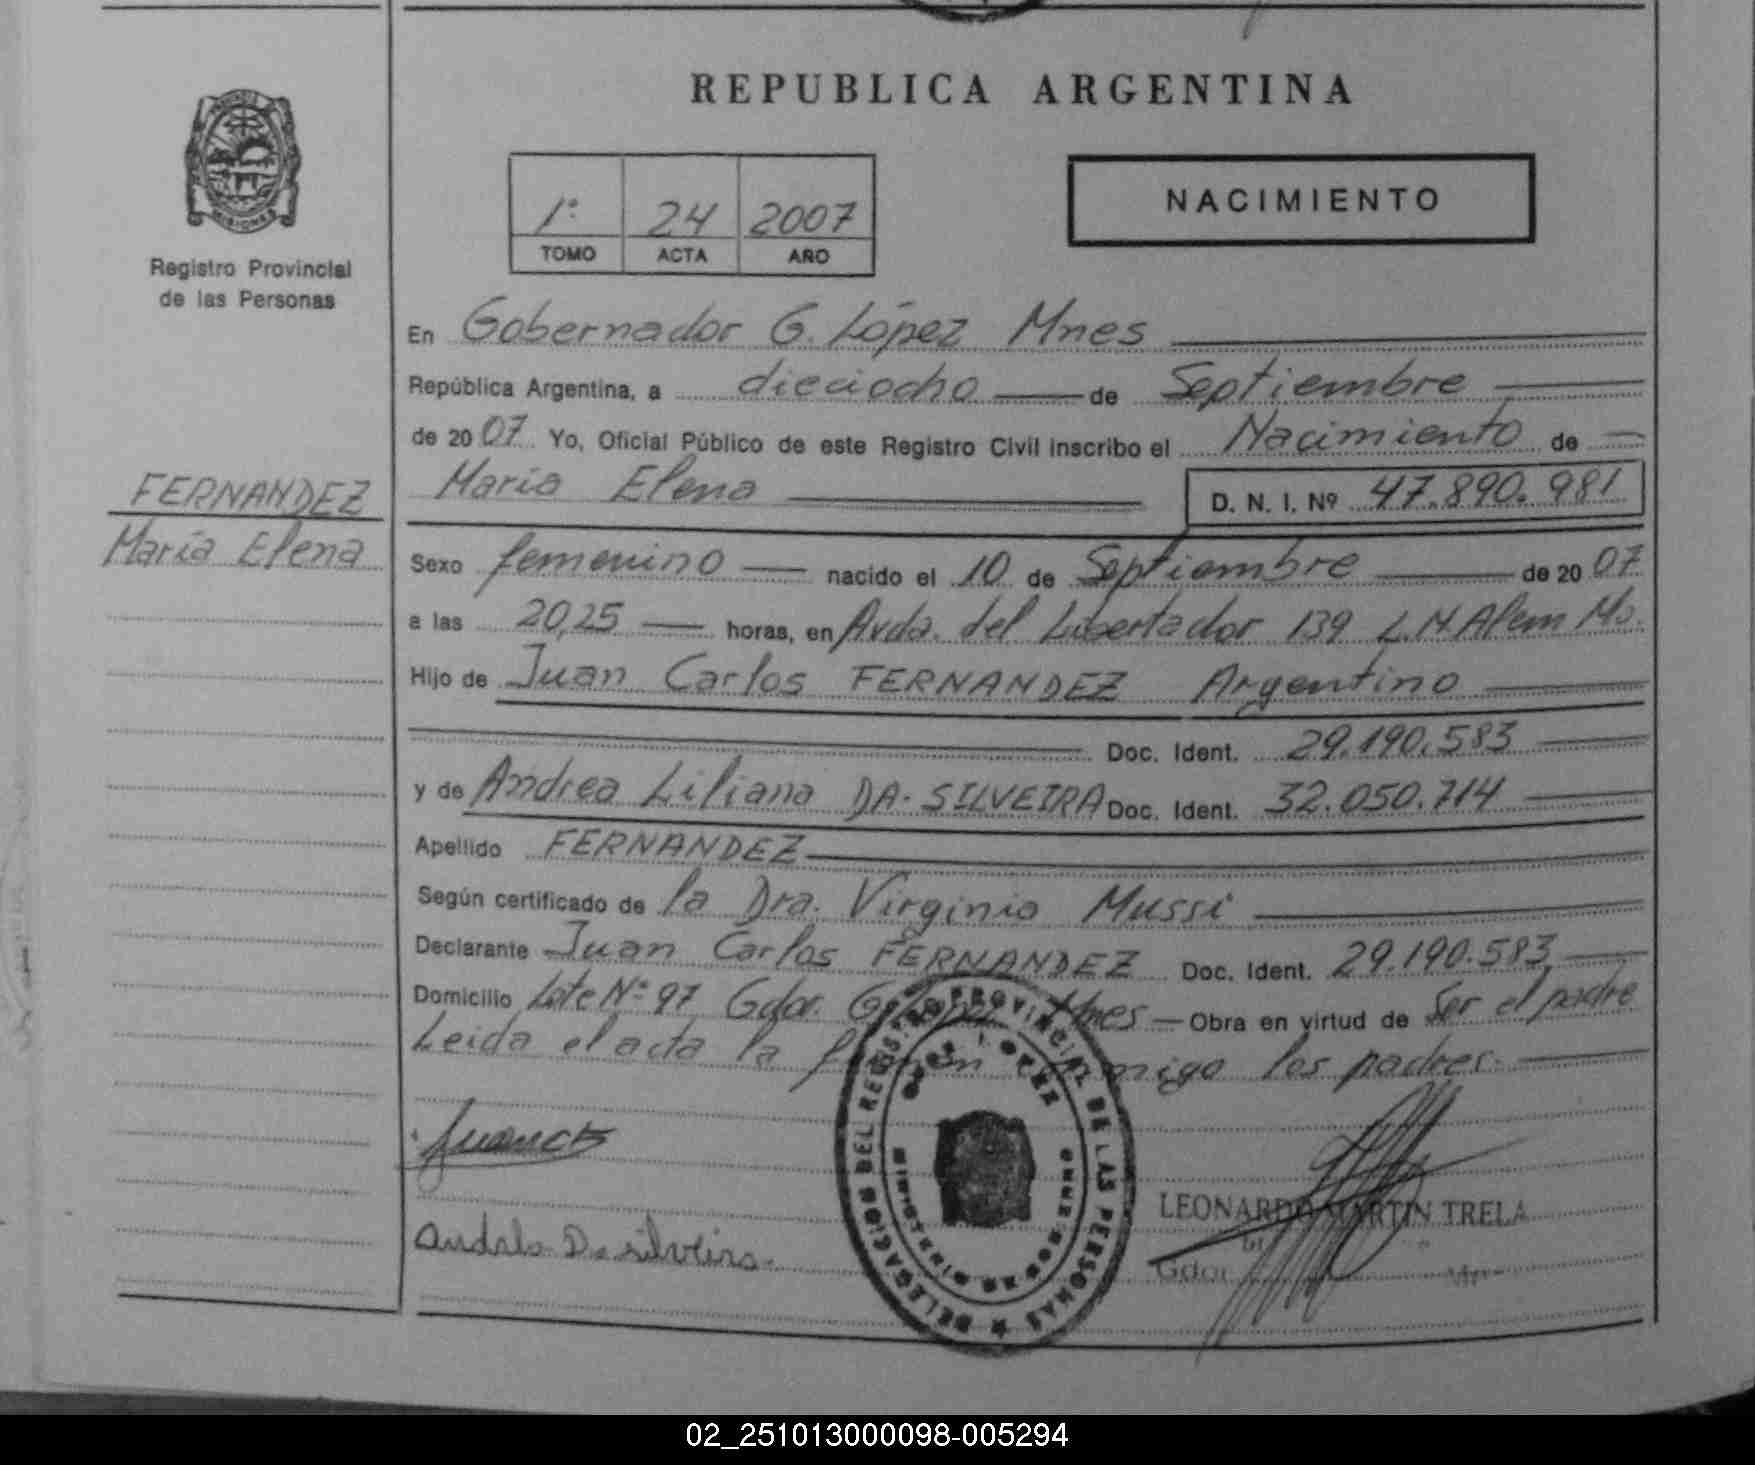 REPUBLICA ARGENTINA
MISIONES
Registro Provincial
de las Personas
1º 24 2007
TOMO ACTA AÑO
NACIMIENTO
En Gobernador G. López Mnes
República Argentina, a dieciocho de Septiembre
de 2007 Yo, Oficial Público de este Registro Civil inscribo el Nacimiento de
María Elena D. N. I. Nº 47.890.981
FERNANDEZ
María Elena
Sexo femenino nacido el 10 de Septiembre de 2007
a las 20,25 horas, en Avda. del Libertador 139 L.N.Alem Ms.
Hijo de Juan Carlos FERNANDEZ Argentino
Doc. Ident. 29.190.583
y de Andrea Liliana DA-SILVEIRA Doc. Ident. 32.050.714
Apellido FERNANDEZ
Según certificado de la Dra. Virginia Mussi
Declarante Juan Carlos FERNANDEZ Doc. Ident. 29.190.583
Domicilio Lote Nº 97 Gdor. G. López Mnes Obra en virtud de Ser el padre
Leida el acta la firman conmigo los padres.
DELEGACION DEL REGISTRO PROVINCIAL DE LAS PERSONAS
LEONARDO MARTIN TRELA
Gdor
02_251013000098-005294